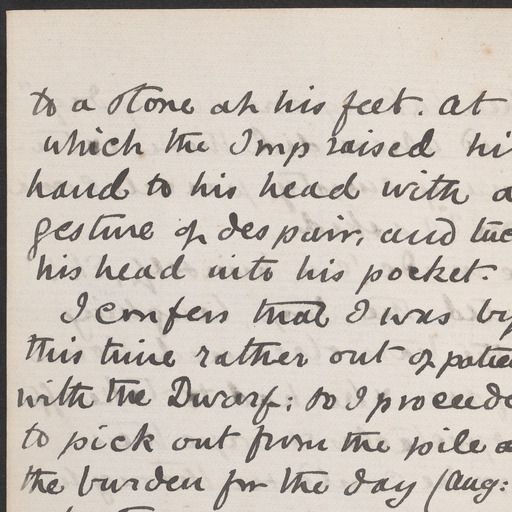 to a stone at his feet. At
which the Imp raised hi
hand to his head with a
gesture of despair, and tuc
his head into his pocket.
I confess that I was by
this time rather out of patie
with the Dwarf; so I proceede
to pick out from the pile a
the burden for the day (Aug: